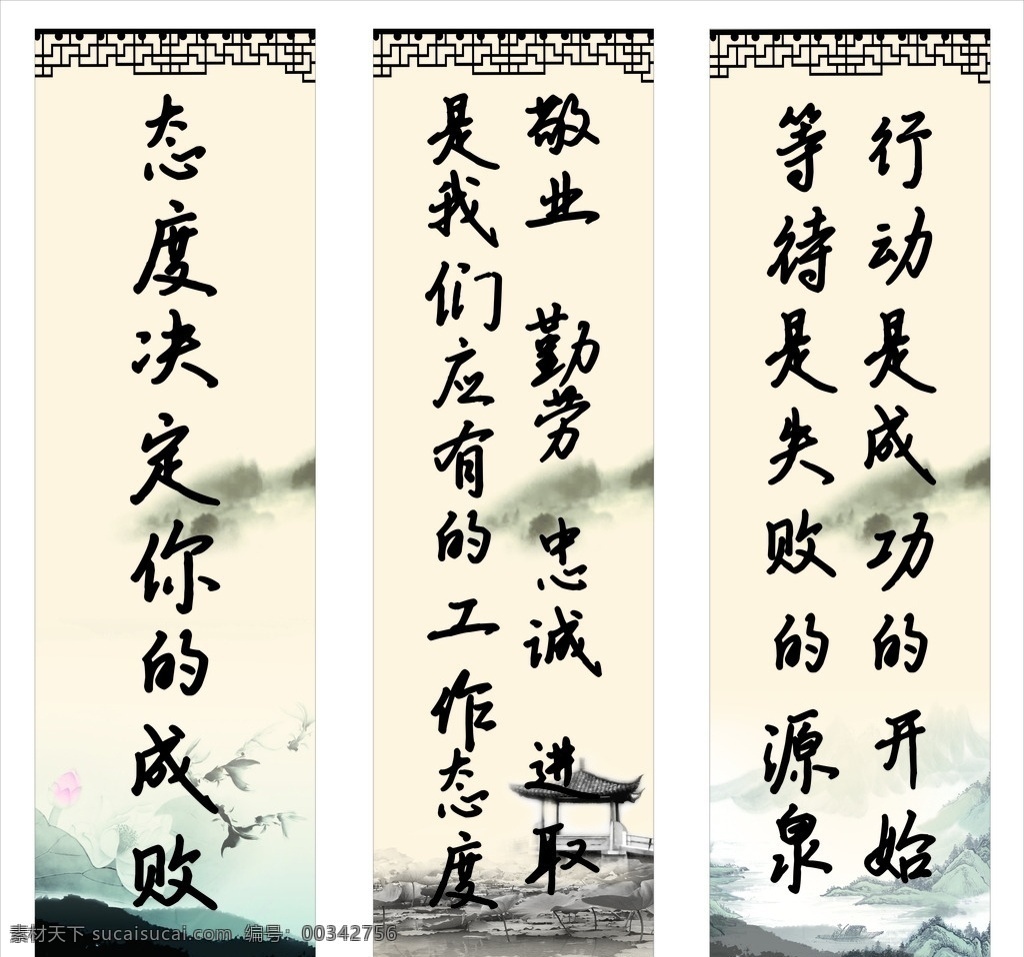 态度决定你的成败
敬业 勤劳 忠诚 进取
是我们应有的工作态度
行动是成功的开始
等待是失败的源泉
素材天下 sucaisucai.com 编号：00342756